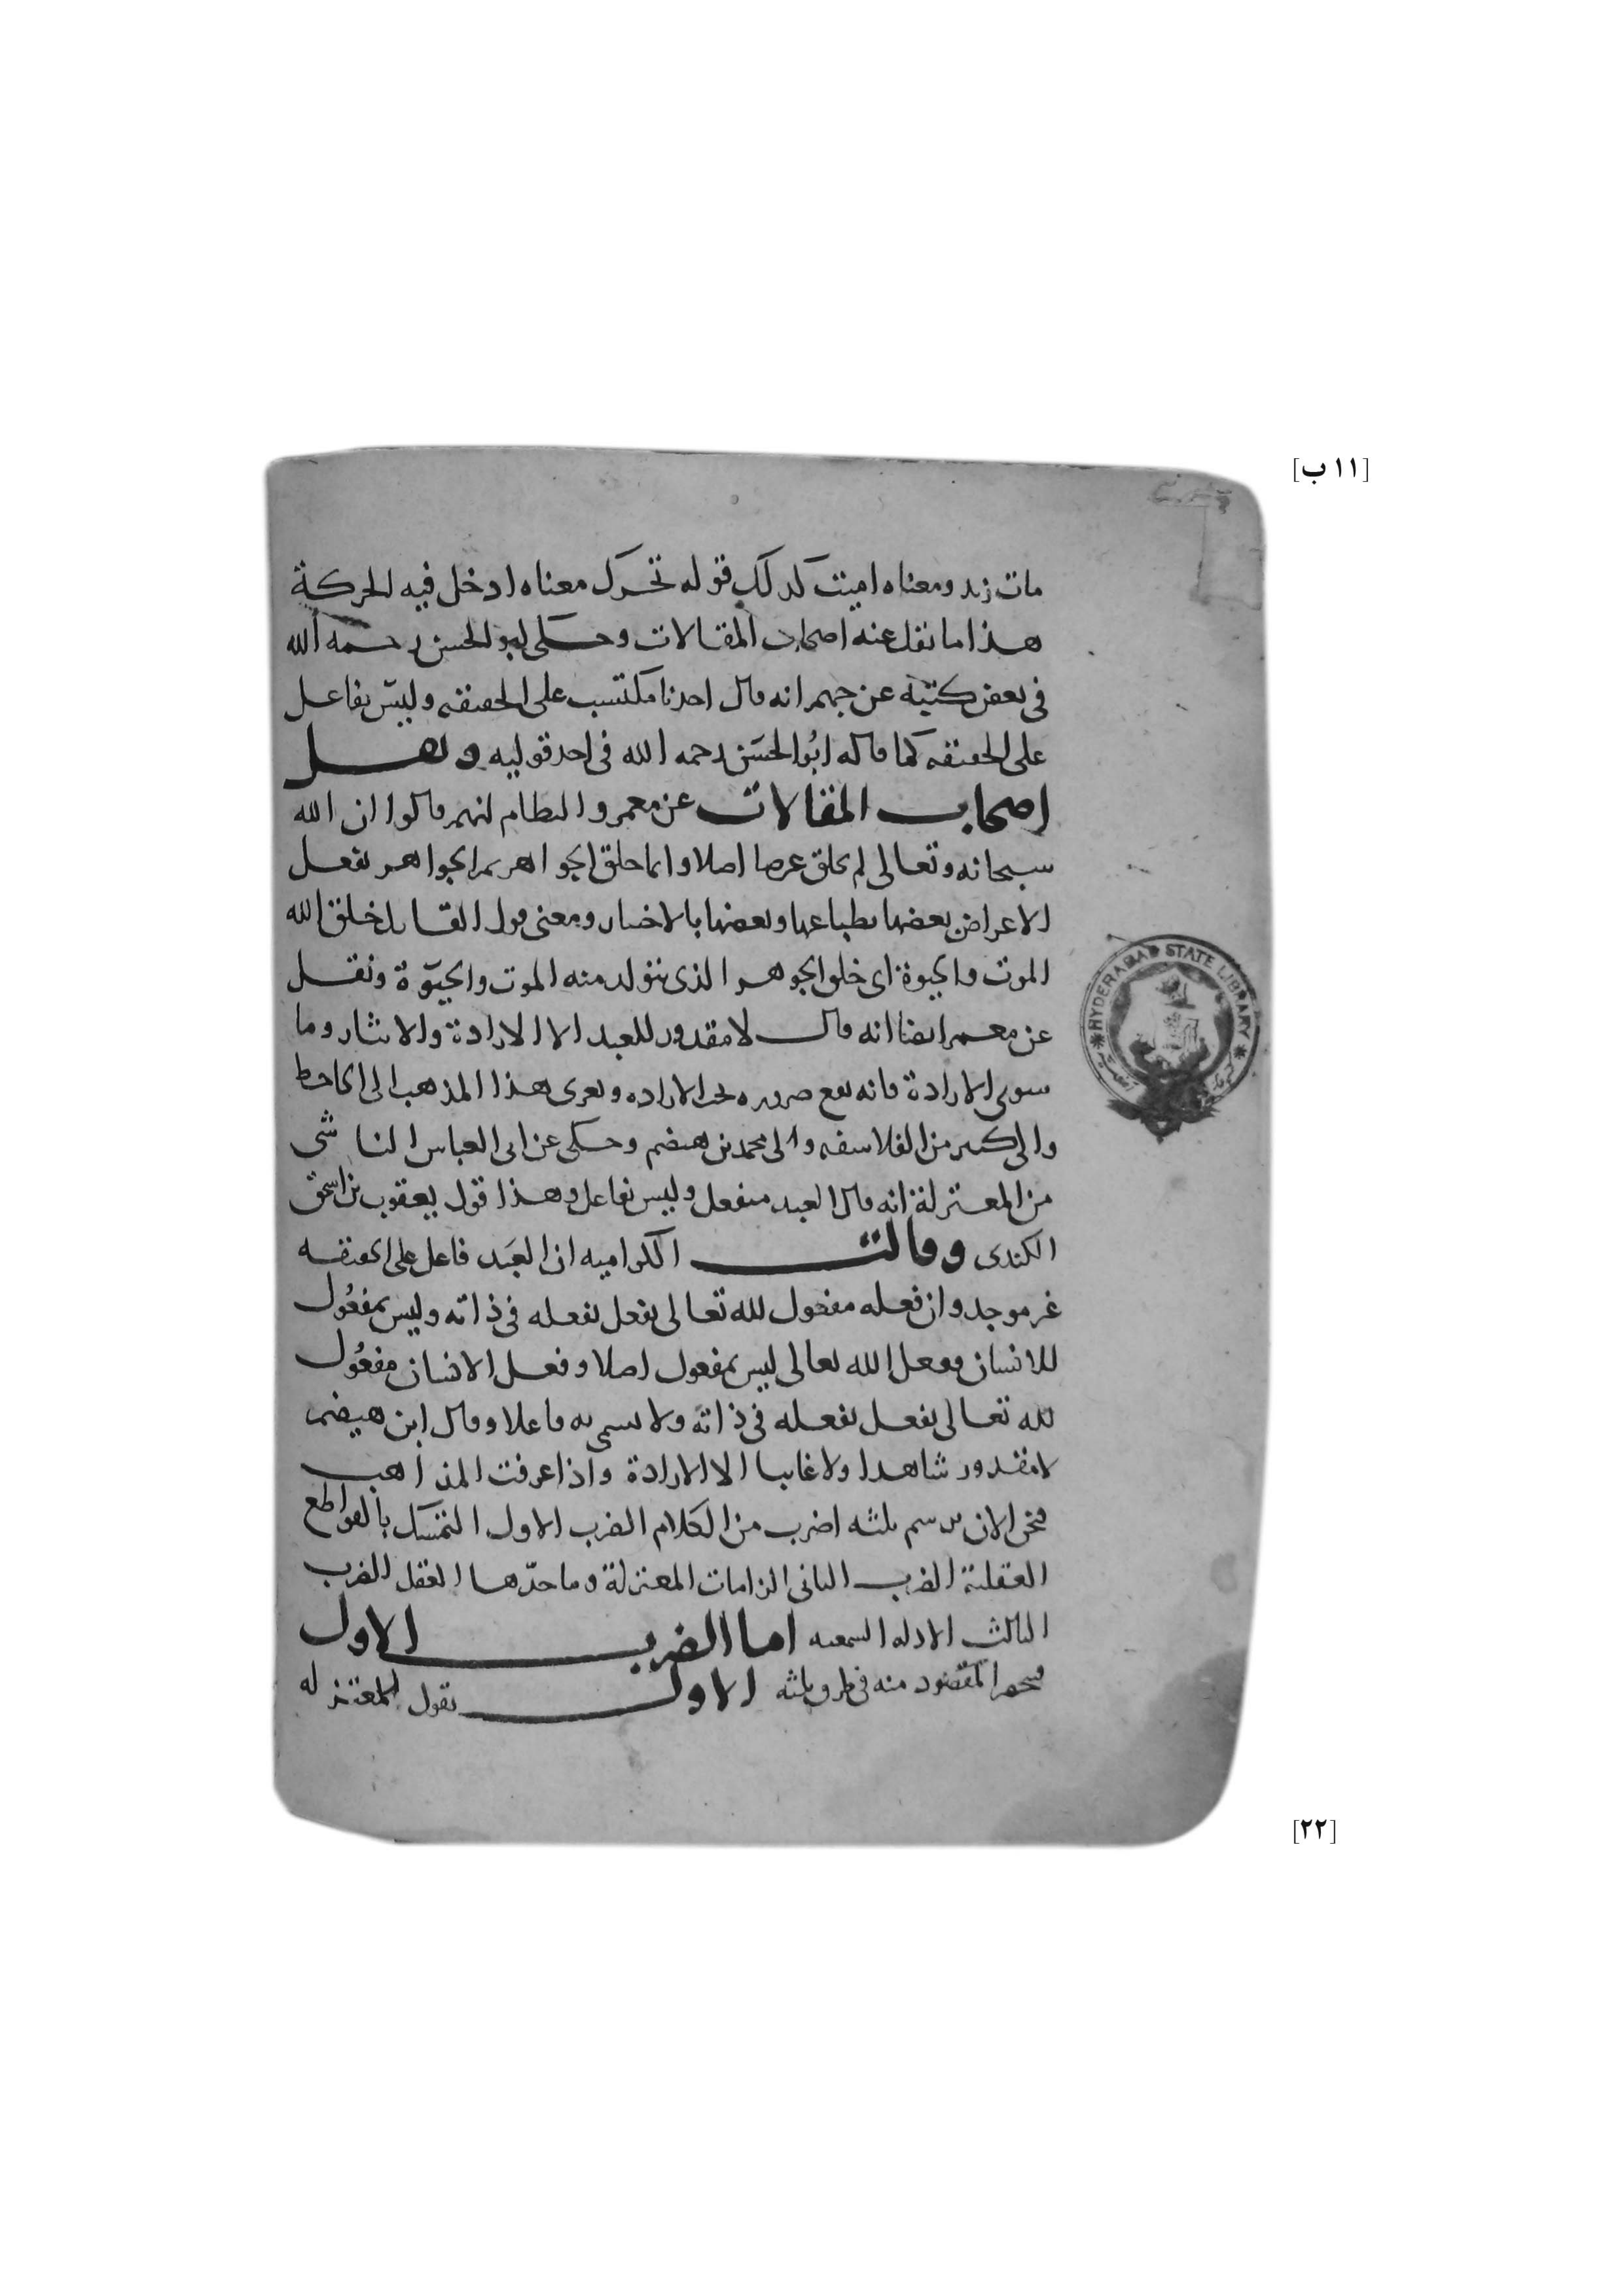 [١١ ب]
مات زيد ومعناه اميت كذلك قوله تحرك معناه ادخل فيه الحركة
هذا ما نقل عنه اصحاب المقالات وحكى ابو الحسن رحمه الله
في بعض كتبه عن جهم انه قال احدنا مكتسب على الحقيقه وليس بفاعل
على الحقيقه كما قاله ابو الحسن رحمه الله في احد قوليه ونقل
اصحاب المقالات عن معمر والنظام انهم قالوا ان الله
سبحانه وتعالى لم يخلق عرضا اصلا وانما خلق الجواهر ثم الجواهر تفعل
الاعراض بعضها بطباعها وبعضها بالاختيار ومعنى قول القايل خلق الله
الموت والحيوة اى خلق الجوهر الذى يتولد منه الموت والحيوة ونقل
عن معمر ايضا انه قال لا مقدور للعبد الا الارادة والايثار وما
سوى الارادة فانه يقع ضروره الاراده ويعزى هذا المذهب الى الجاحظ
والى كثير من الفلاسفه والى محمد بن هيضم وحكى عن ابى العباس الناشى
من المعتزلة انه قال العبد منفعل وليس بفاعل وهذا قول يعقوب بن اسحق
الكندى وقالت الكراميه ان العبد فاعل على الحقيقه
غير موجد وان فعله مفعول لله تعالى بفعل يفعله في ذاته وليس بمفعول
للانسان وفعل الله تعالى ليس بمفعول اصلا وفعل الانسان مفعول
لله تعالى بفعل يفعله في ذاته ولا يسمى به فاعلا وقال ابن هيضم
لا مقدور شاهدا ولا غايبا الا الارادة واذا عرفت المذاهب
فنحن الان نرسم ثلثه اضرب من الكلام الضرب الاول التمسك بالقواطع
العقلية الضرب الثانى الزامات المعتزلة وما حدّها العقل الضرب
الثالث الادله السمعيه اما الضرب الاول
المقصود منه في طرق ثلثه الاول نقول للمعتزله
HYDERABAD STATE LIBRARY
[٢٢]